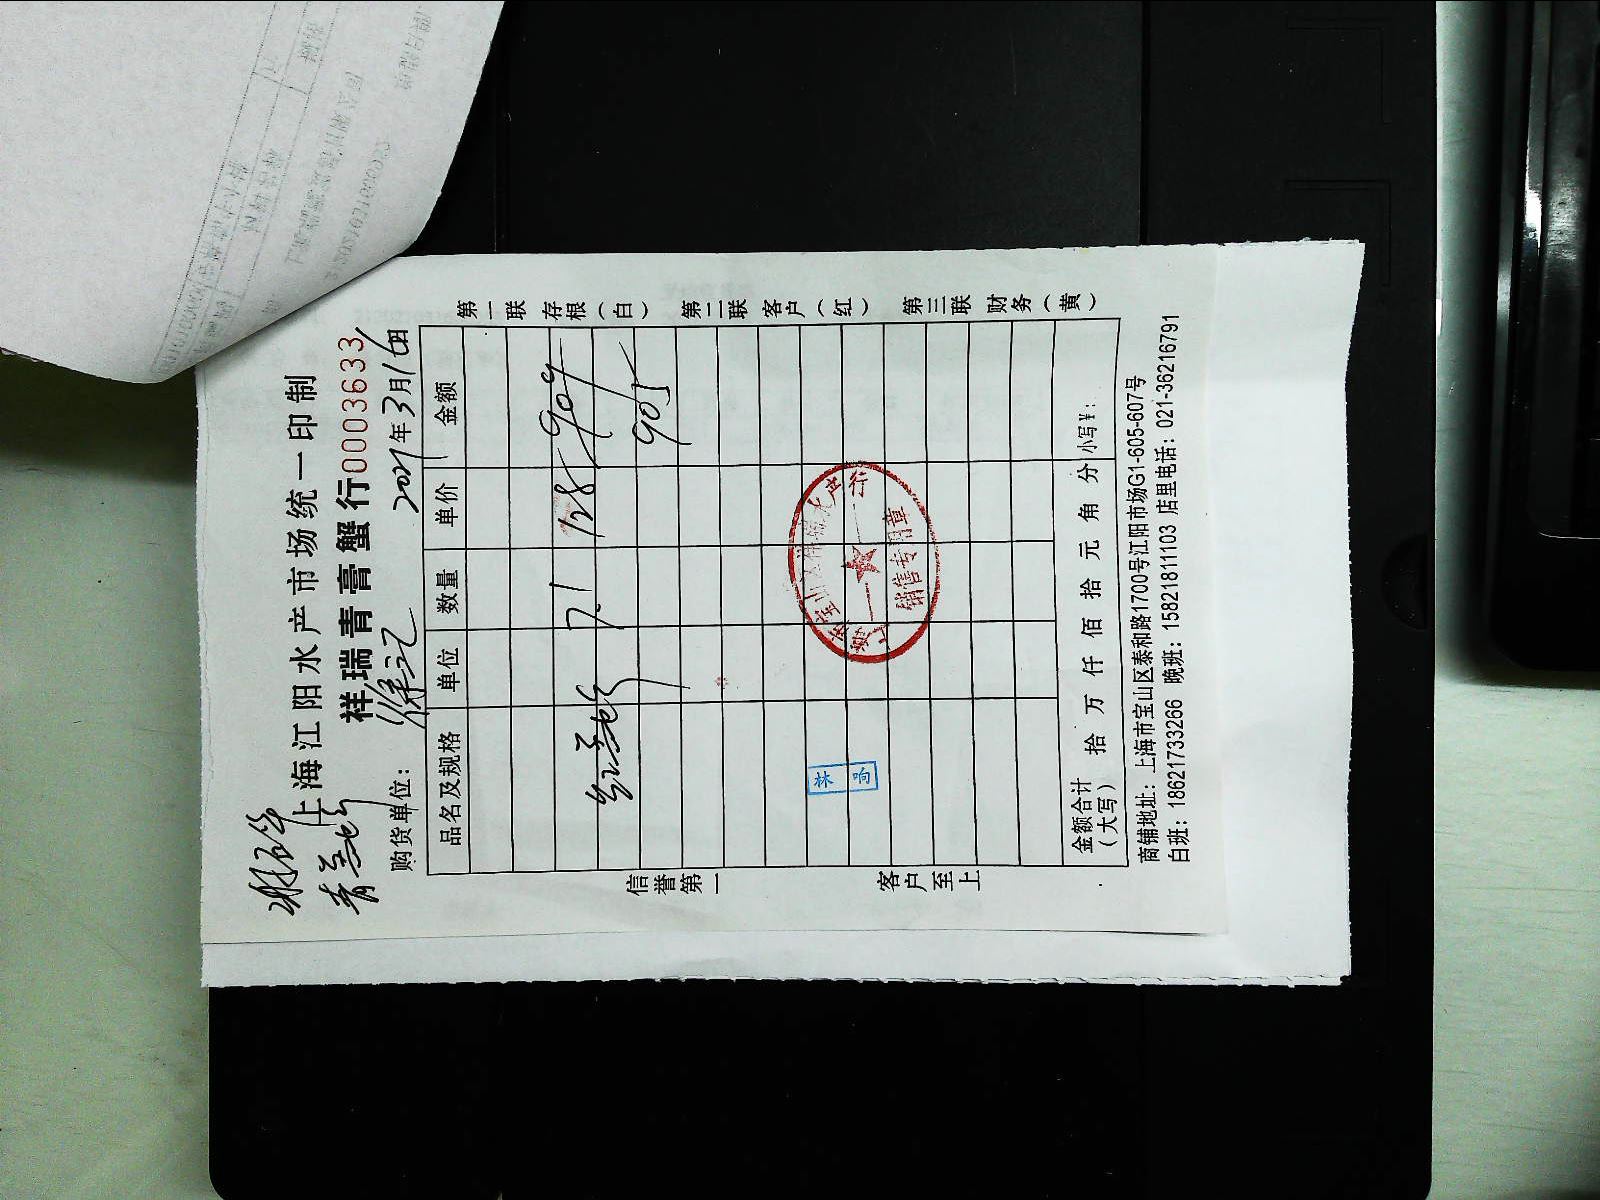 上海江阳水产市场统一印制
祥瑞青膏蟹行0003633
购货单位：徐记 2021年3月16日
品名及规格 单位 数量 单价 金额
7.1 128 909
905
林响
销售专用章
金额合计（大写） 拾 万 仟 佰 拾 元 角 分 小写¥：
商铺地址：上海市宝山区泰和路1700号江阳市场G1-605-607号
白班：18621733266 晚班：15821811103 店里电话：021-36216791
第一联 存根（白） 第二联 客户（红） 第三联 财务（黄）
信誉第一 客户至上